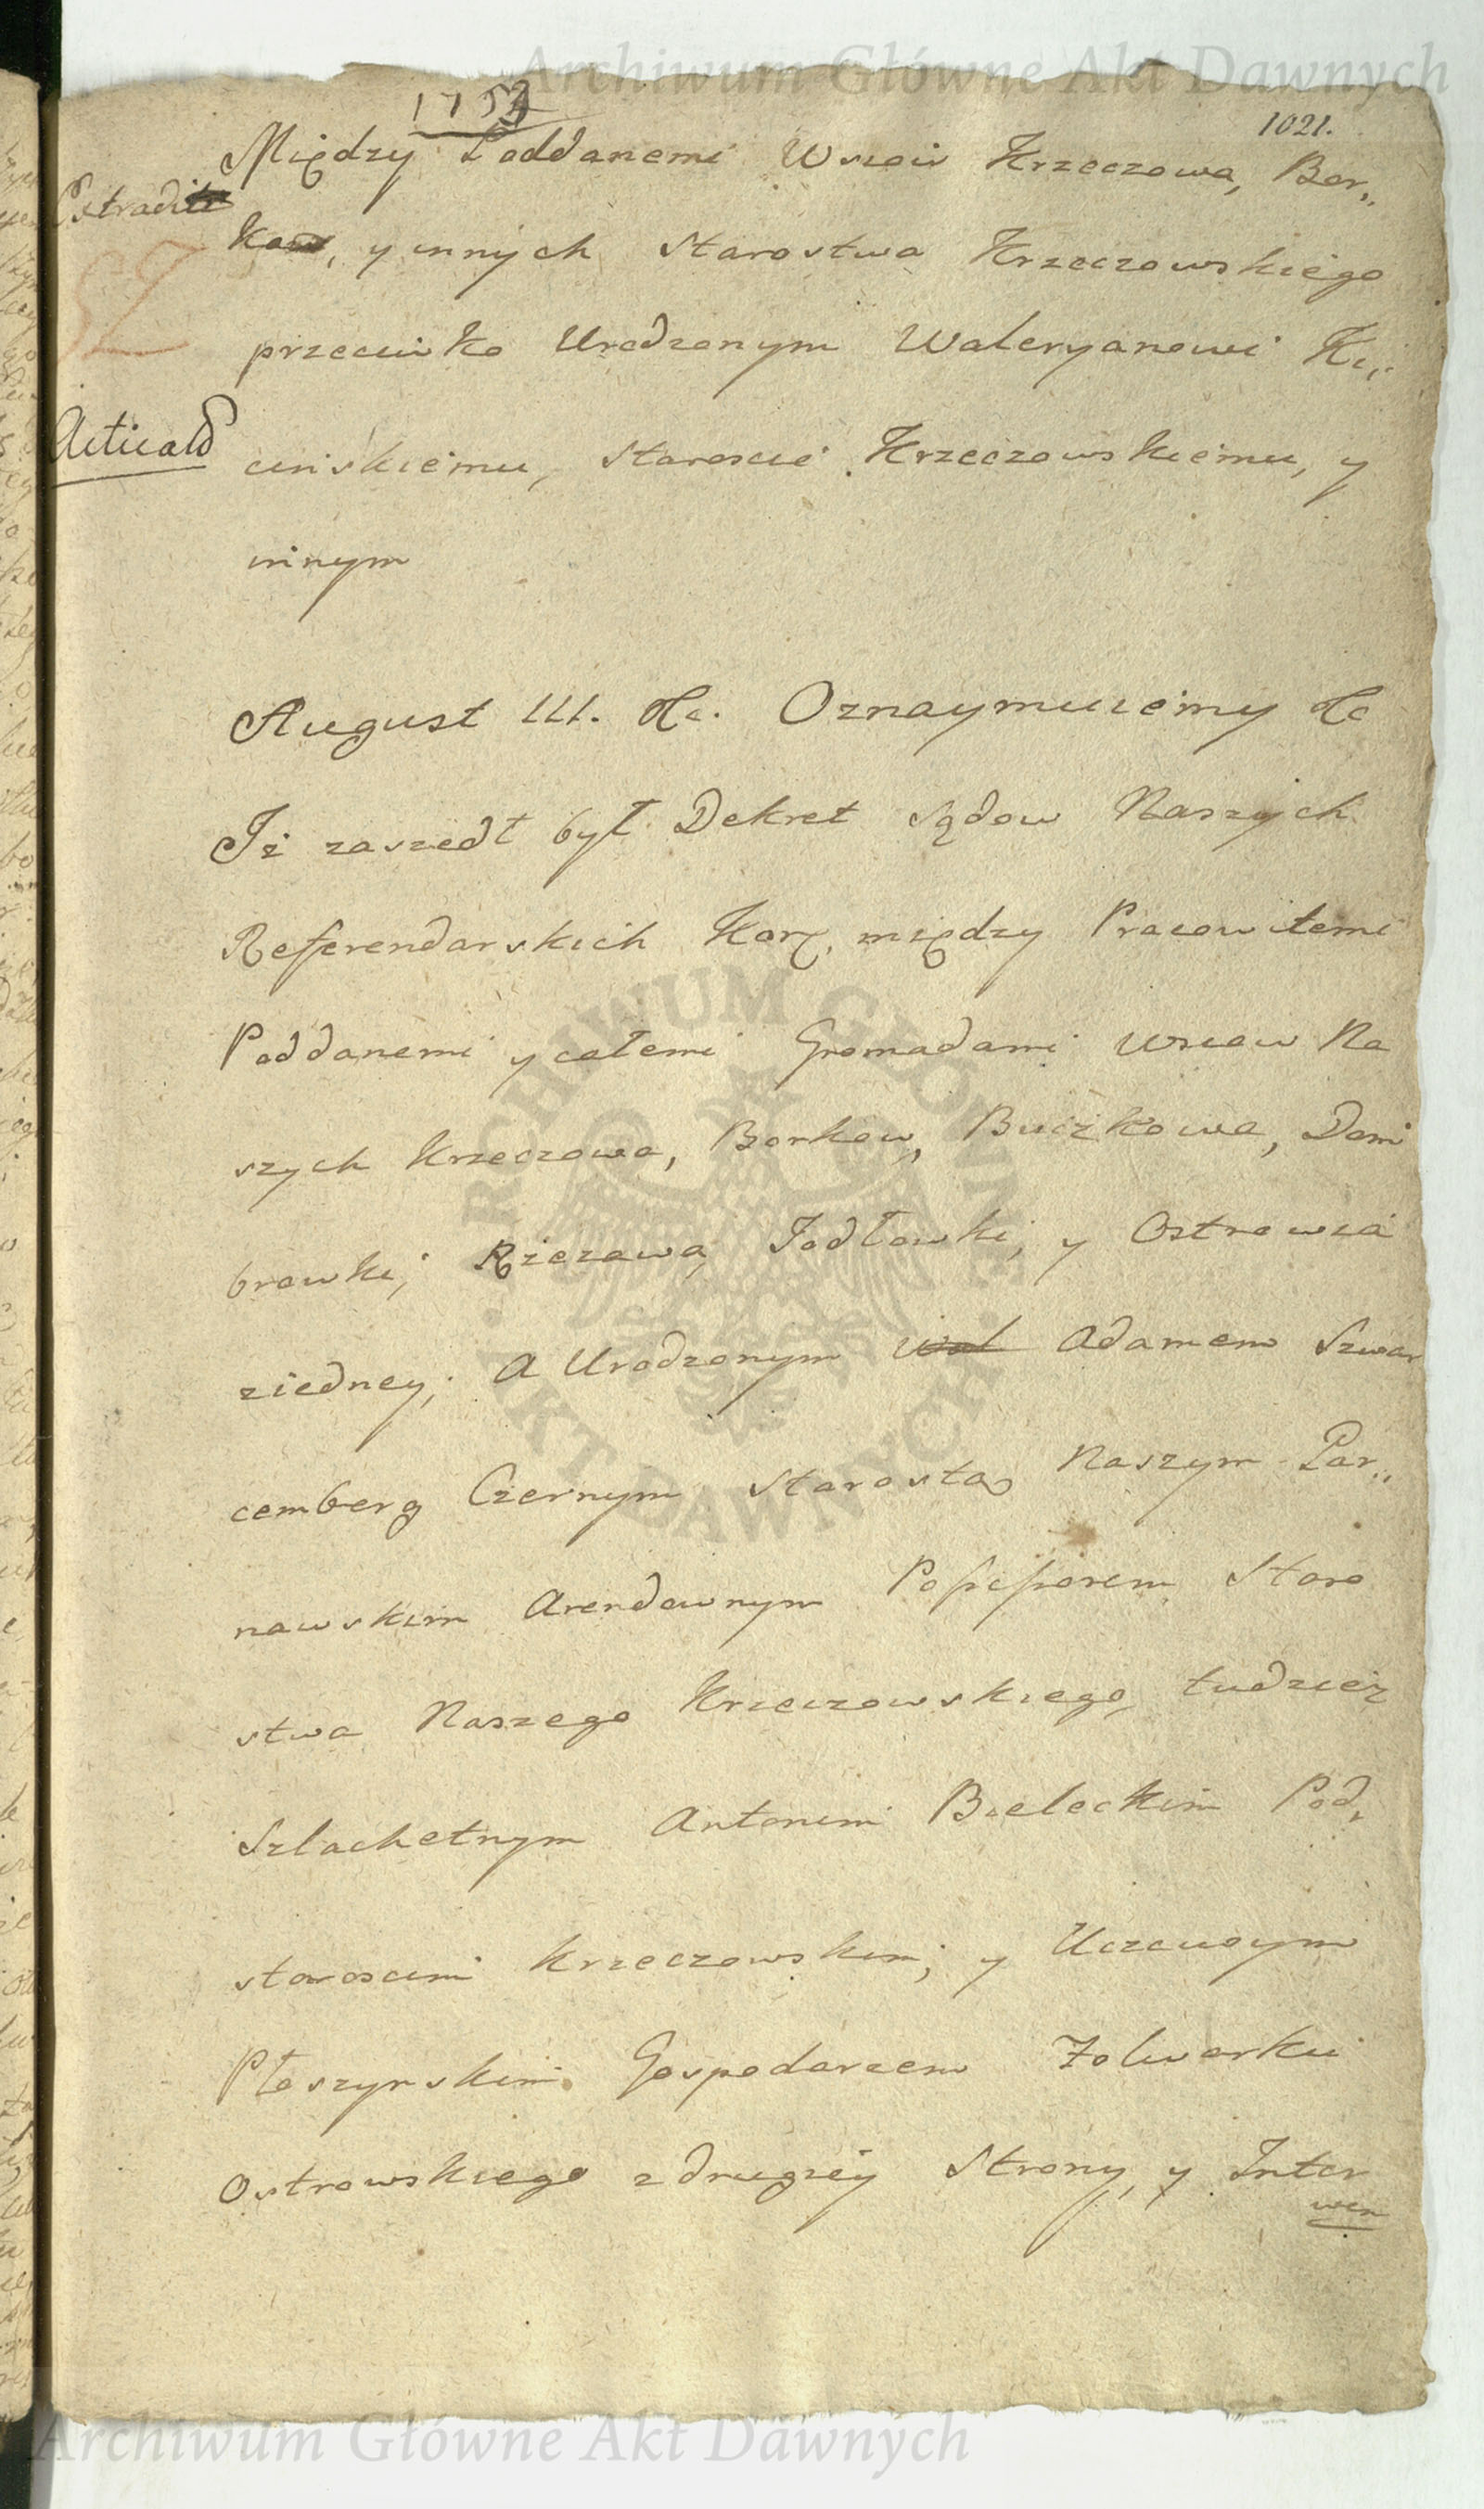 Archiwum Główne Akt Dawnych
1021.
Między Poddanemi Wsiow Krzeczowa, Bor„
kow, y innych Starostwa Krzeczowskiego
przeciwko Urodzonym Waleryanowi Ki„
cinskiemu, Staroscie Krzeczowskiemu, y
innym
Extradit
Acticatd
August III. &c. Oznaymuiemy &c
Iż zaszedł był Dekret Sądow Naszych
Referendarskich Kor. między Pracowitemi
Poddanemi y całemi Gromadami Wsiow Na
szych Krzeczowa, Borkow, Buczkowa, Dom
browki, Rzezawa, Jodłowki, y Ostrowia
ziedney, A Urodzonym Wal Adamem Szwar
cemberg Czernym Starostą Naszym Par„
nawskim Arendownym Possessorem Staro
stwa Naszego Krzeczowskiego, tudziez
Szlachetnym Antonim Bieleckim Pod„
staroscim Krzeczowskim, y Uczciwym
Płoszynskim Gospodarzem Folwarku
Ostrowskiego z drugiey Strony, y Inter
wen
ARCHIWUM GŁÓWNE AKT DAWNYCH
Archiwum Główne Akt Dawnych